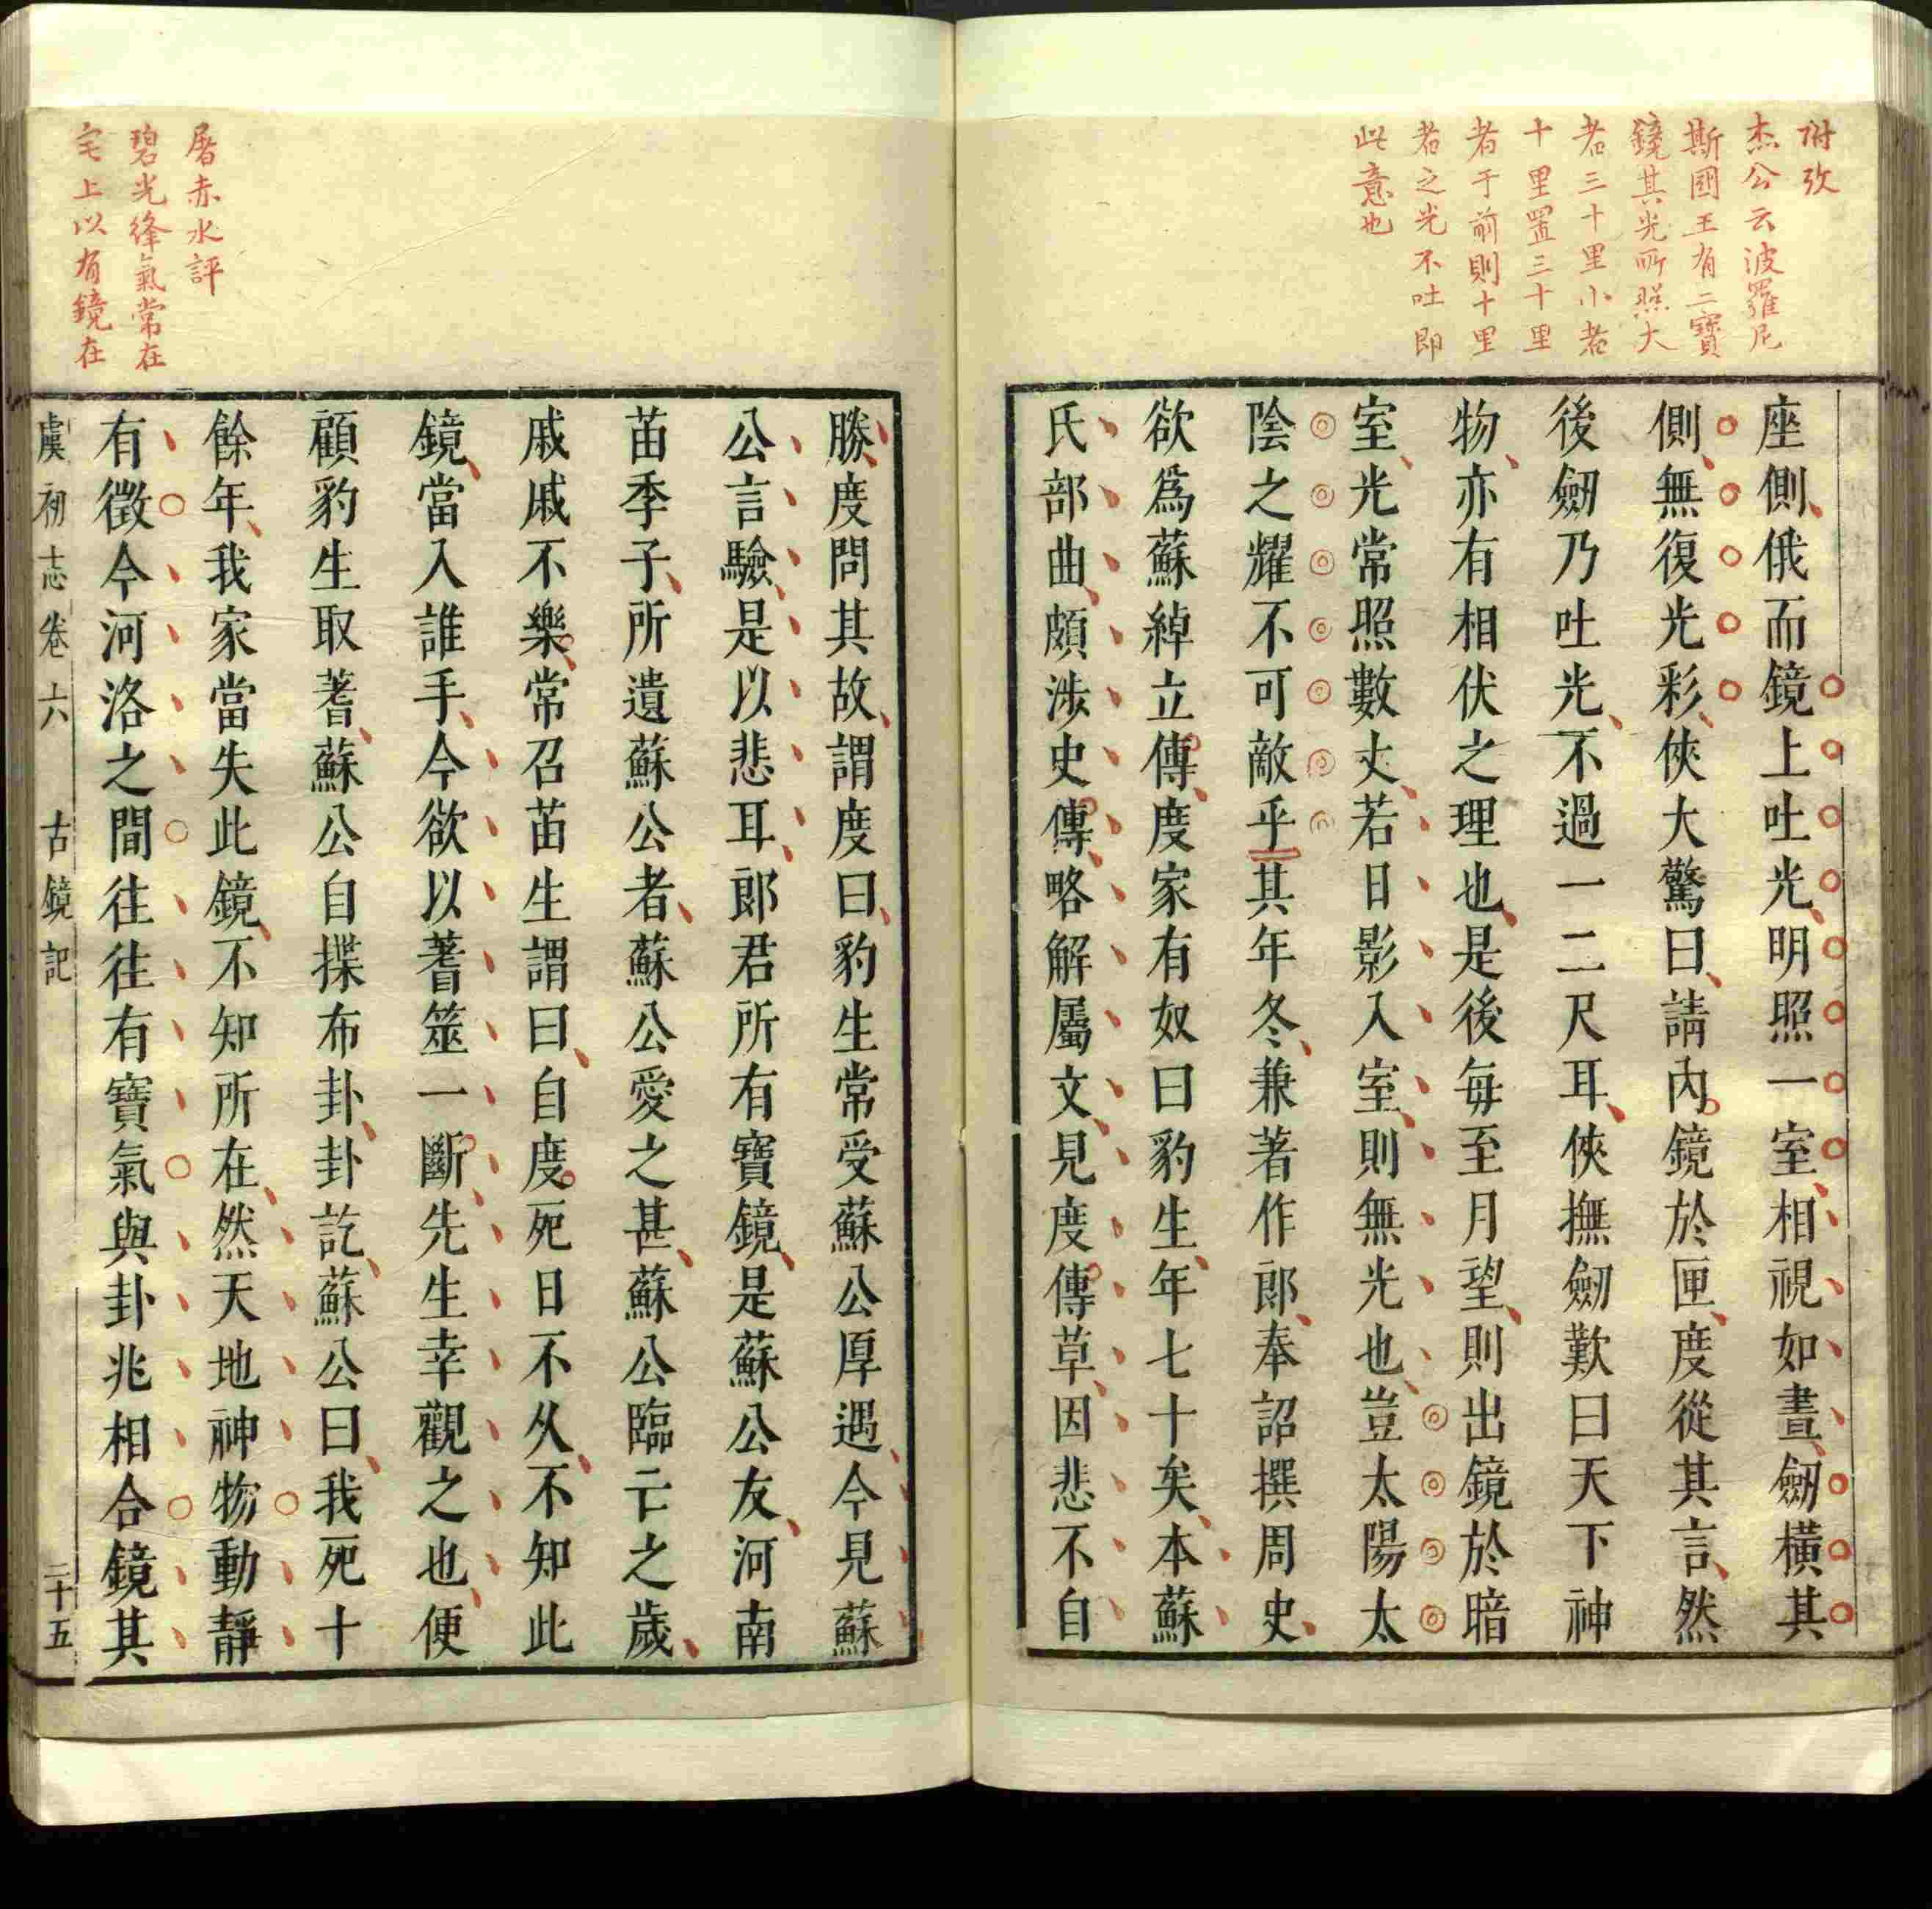 附攷
杰公云波羅尼
斯國王有二寶
鏡其光所照大
者三十里小者
十里置三十里
者于前則十里
者之光不吐即
此意也
座側俄而鏡上吐光明照一室相視如晝劒橫其
側無復光彩俠大驚曰請內鏡於匣度從其言然
後劒乃吐光不過一二尺耳俠撫劒歎曰天下神
物亦有相伏之理也是後每至月望則出鏡於暗
室光常照數丈若日影入室則無光也豈太陽太
陰之耀不可敵乎其年冬兼著作郎奉詔撰周史
欲爲蘇綽立傳度家有奴曰豹生年七十矣本蘇
氏部曲頗涉史傳略解屬文見度傳草因悲不自
屠赤水評
碧光絳氣常在
宅上以有鏡在
勝度問其故謂度曰豹生常受蘇公厚遇今見蘇
公言驗是以悲耳郎君所有寶鏡是蘇公友河南
苗季子所遺蘇公者蘇公愛之甚蘇公臨亡之歲
戚戚不樂常召苗生謂曰自度死日不久不知此
鏡當入誰手今欲以蓍筮一斷先生幸觀之也便
顧豹生取蓍蘇公自揲布卦卦訖蘇公曰我死十
餘年我家當失此鏡不知所在然天地神物動靜
有徵今河洛之間往往有寶氣與卦兆相合鏡其
虞初志卷六 古鏡記 二十五